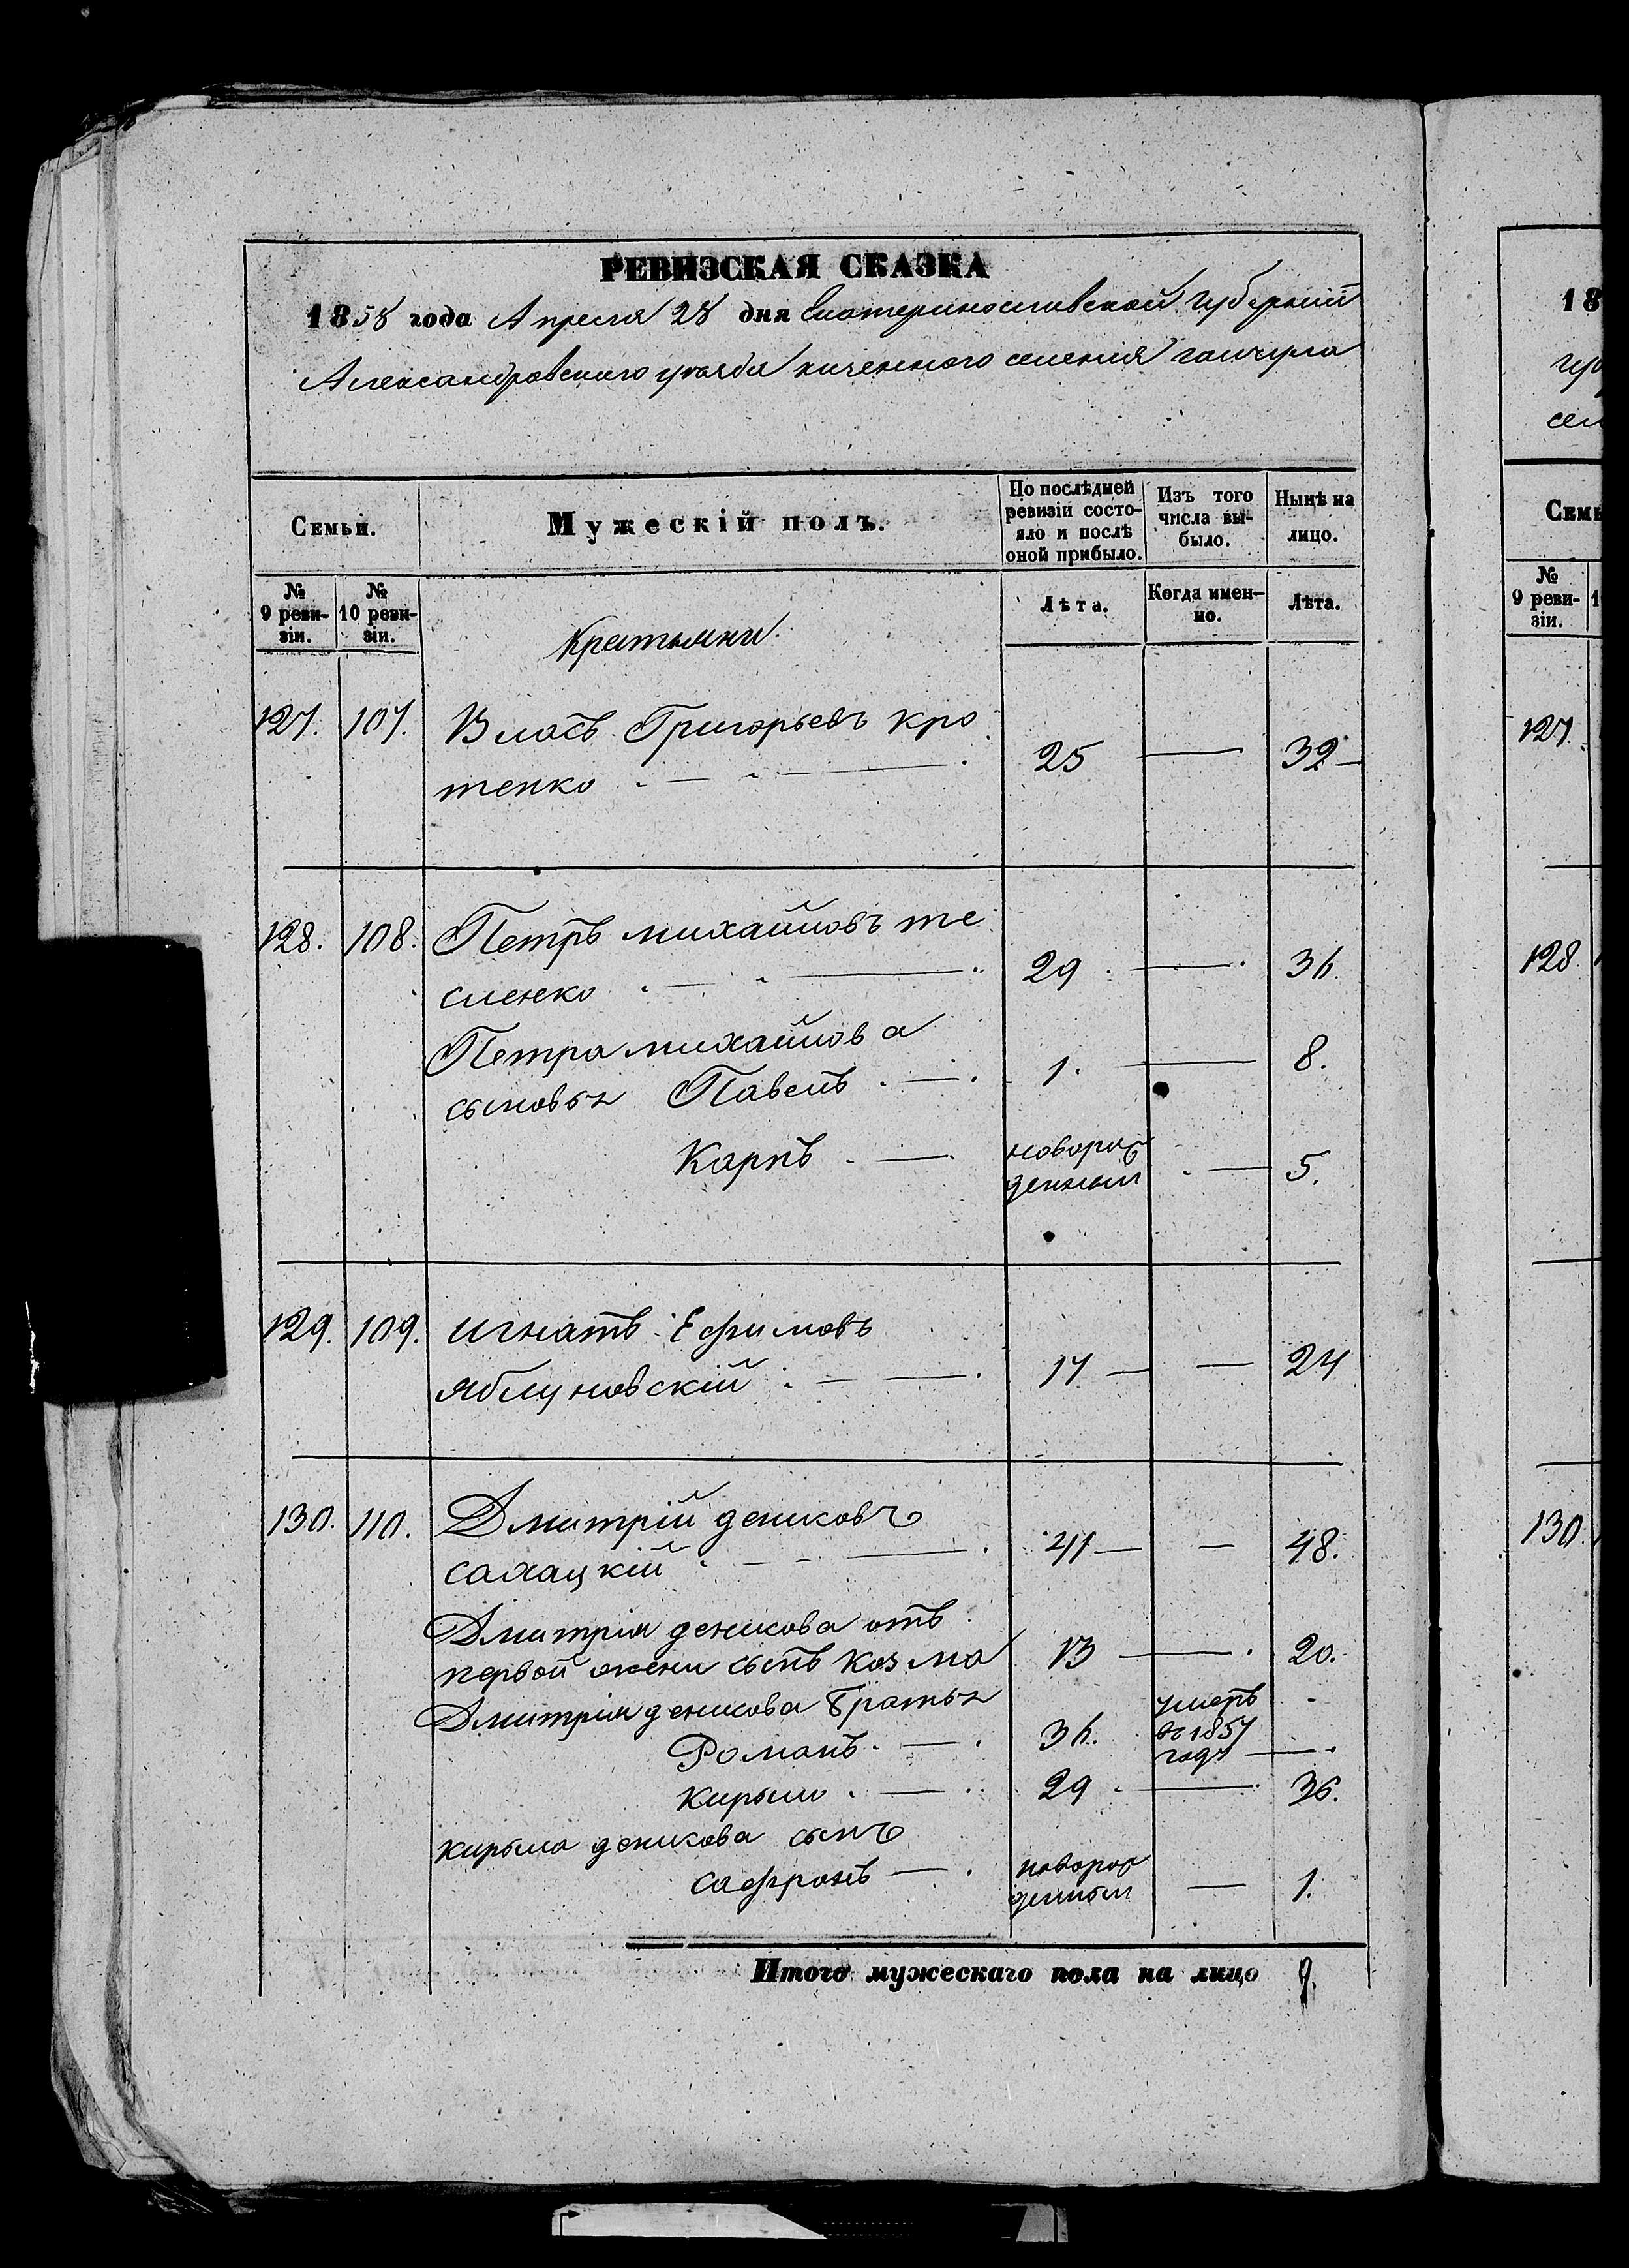 РЕВИЗСКАЯ СКАЗКА
1858 года Апреля 28 дня Екатеринославской Губернии
Александровского уѣзда казенного селения гайчула
Семьи.
Мужескій полъ.
По послѣдней ревизіи состо-
яло и послѣ
оной прибыло.
Изъ того
числа вы-
было.
Нынѣ на
лицо.
№
9 реви-
зіи.
№
10 реви-
зіи.
Лѣта.
Когда имен-
но.
Лѣта.
Крестьяни
127. 107. Власъ Григорьевъ кро
тенко 25 — 32
128. 108. Петръ михайловъ те
сленко 29 — 36.
Петра михайлова
сыновья Павелъ 1. — 8.
Карпъ новорож
денный — 5.
129. 109. игнатъ Ефимовъ
яблуновскій 17 — 24
130. 110. Дмитрій денисовъ
сахацкій 41 — 48.
Дмитрия денисова отъ
первой жены сынъ козма 13 — 20.
Дмитрия денисова братья
Романъ 36. умеръ
въ 1857
году —
Кирыло 29 — 36.
кирыла денисова сынъ
сафронъ новорож
денный — 1.
Итого мужескаго пола на лицо 9.
18
сел
Семь
№
9 реви-
зіи.
1
127.
128.
130